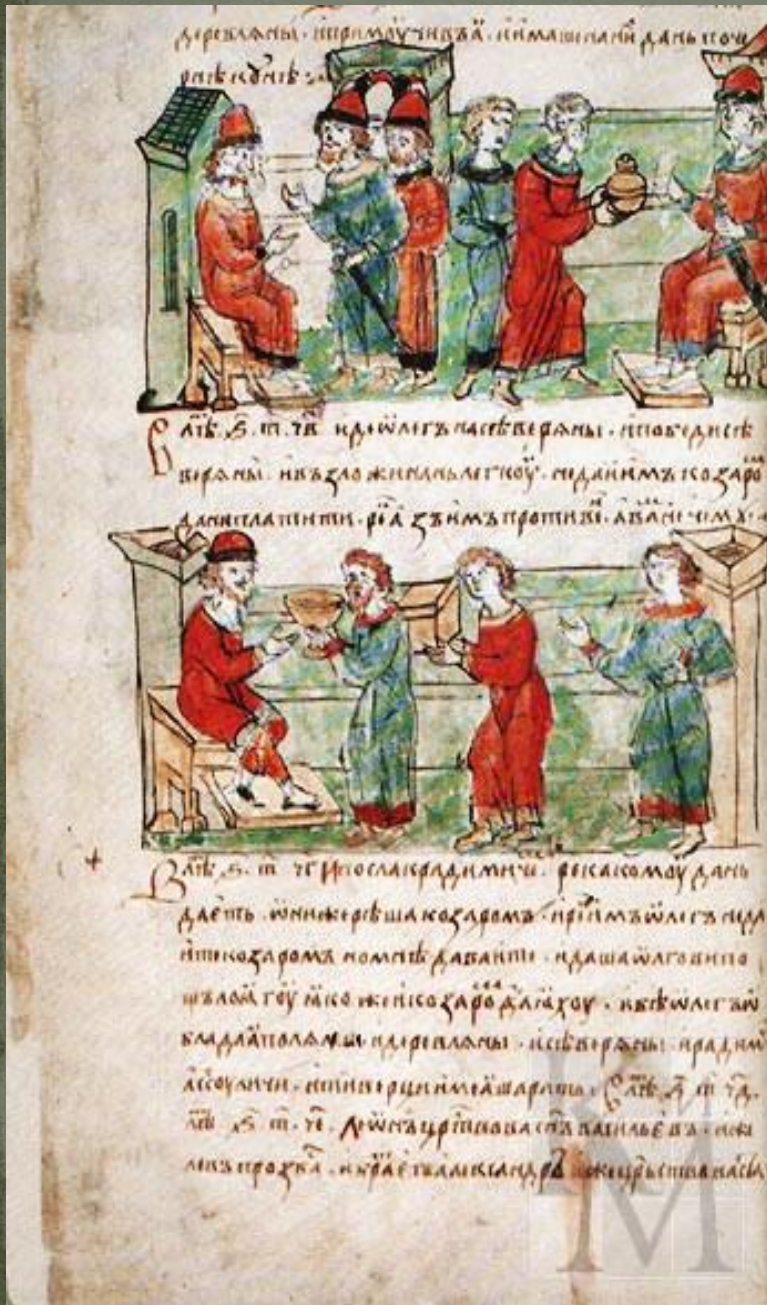 деревлѧны · и примоучивъ ѧ · и имаше на ни дань по че
рнѣ кꙋнѣ :·
В лѣ ҂ѕ҃ · т҃ · ч҃в иде ѡлегъ на сѣверѧны · и победи сѣ
верѧны · и възложи дань легкоу · не да имъ козаро
дани платити · рек ѧзъ имъ противенъ · а вам нечемꙋ ·
В лѣ ҂ѕ҃ · т҃ · ч҃г И посла к радимиче · река комоу дань
даеть · ѡни же рѣша козаромъ · и ре имъ ѡлегъ не да
ите козаромъ но мнѣ даваите · и даша ѡлгови по
щълѧгоу ꙗко же и козаро даѧхоу · и бѣ ѡлегъ ѡ
бладаѧ полѧны и деревлѧны · и сѣверѧны · и радим
а с соуличи · и тиверци имѧше рать · В лѣ ҂ѕ҃ · т҃ · ч҃д ·
лѣ ҂ѕ҃ · т҃ · ч҃е · Леѡнъ црьствова снъ васильевъ · иже
левъ прозвасѧ · и бра его александръ иже црьствоваста
КМ